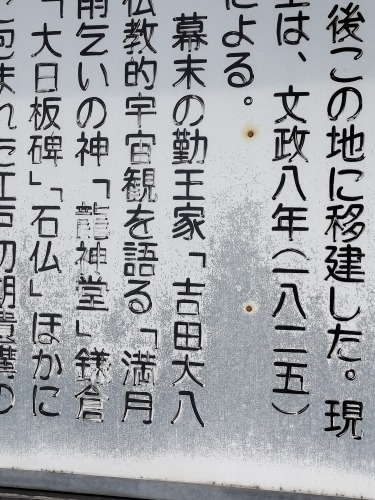 後この地に移建した。現
は、文政八年(一八二五)
による。
幕末の勤王家「吉田大八
仏教的宇宙観を語る「満月
雨乞いの神「龍神堂」鎌倉
「大日板碑」「石仏」ほかに
包まれた江戸初期